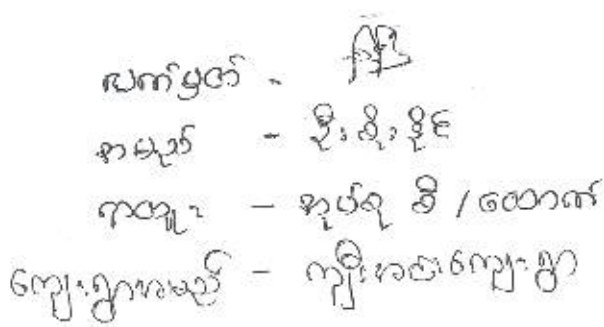 လက်မှတ် -
အမည် - ဦးစိုးခိုင်
ရာထူး - အုပ်စု စီ/ထောက်
ကျေးရွာအမည် - ကျိုးအင်းကျေးရွာ